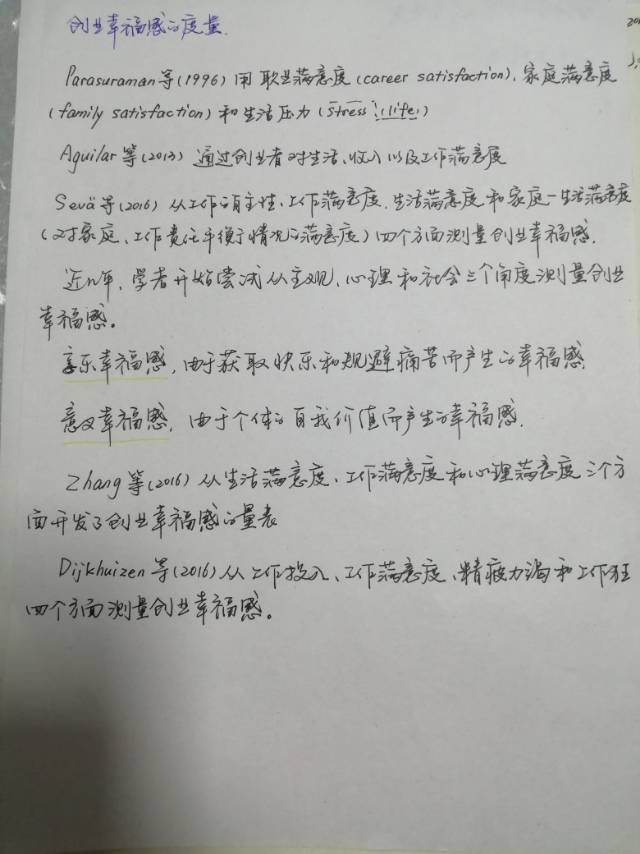 创业幸福感的度量.
Parasuraman等(1996)用职业满意度(career satisfaction)、家庭满意度
(family satisfaction)和生活压力(stress life)
Aguilar等(2013)通过创业者对生活、收入以及工作满意度
Sevä等(2016)从工作自主性、工作满意度、生活满意度和家庭-生活满意度
(对家庭、工作责任平衡情况的满意度)四个方面测量创业幸福感.
近几年,学者开始尝试从主观、心理和社会三个角度测量创业
幸福感。
享乐幸福感,由于获取快乐和规避痛苦而产生的幸福感.
意义幸福感,由于个体的自我价值而产生的幸福感.
Zhang等(2016)从生活满意度、工作满意度和心理满意度三个方
面开发了创业幸福感的量表
Dijkhuizen等(2016)从工作投入、工作满意度、精疲力竭和工作狂
四个方面测量创业幸福感。